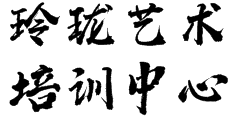 玲珑艺术
培训中心